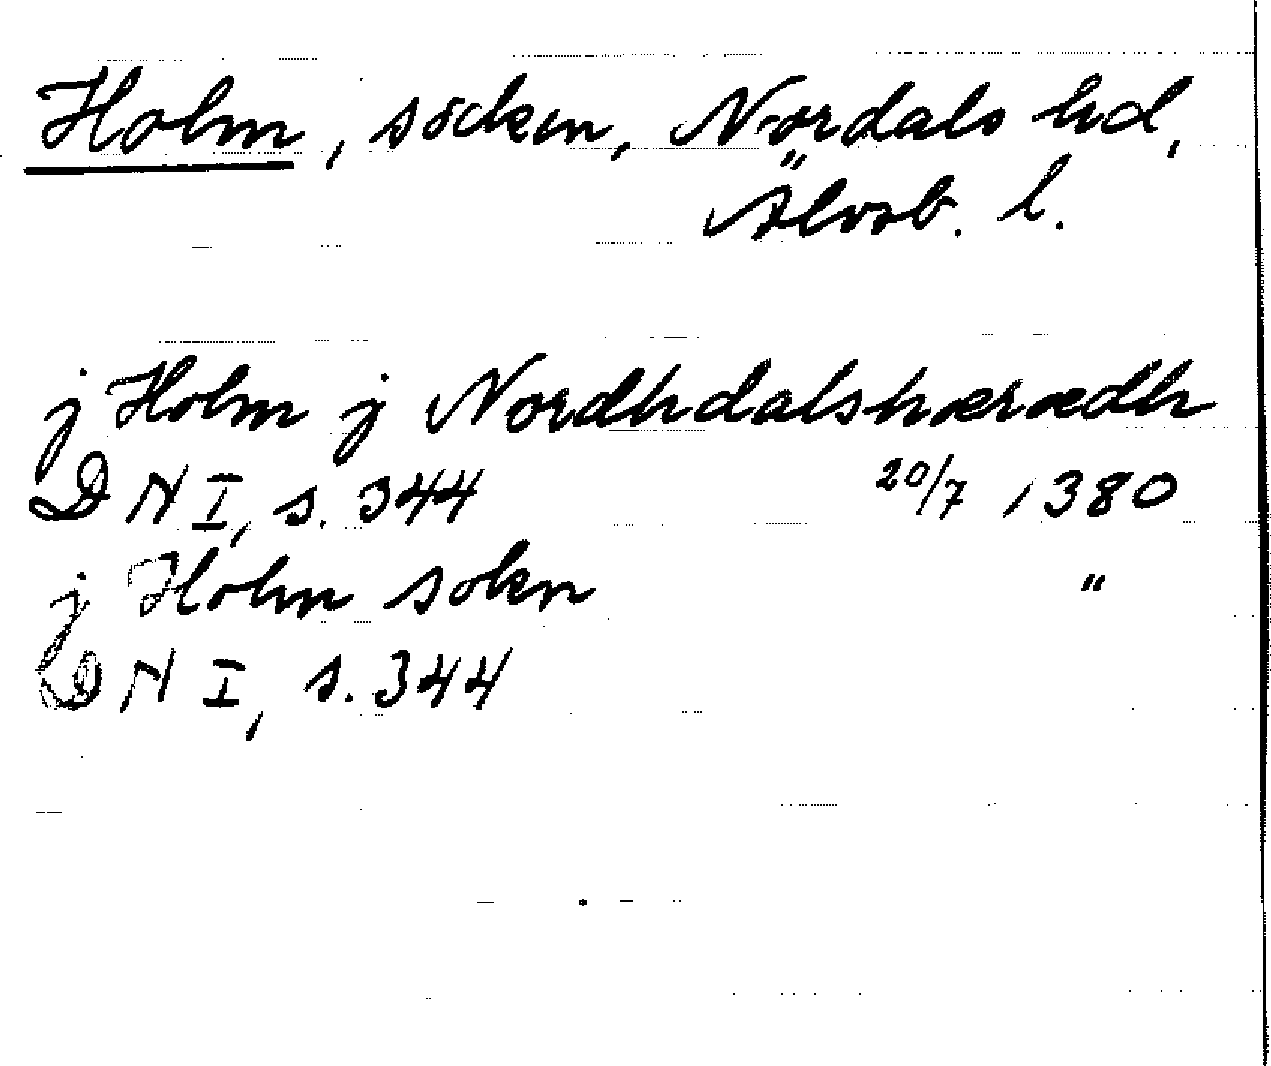 Holm, socken, Nordals hd,
Älvsb. l.
j Holm j Nordhdalshærædh
DN I, s. 344 20/7 1380
j Holm sokn "
DN I, s. 344